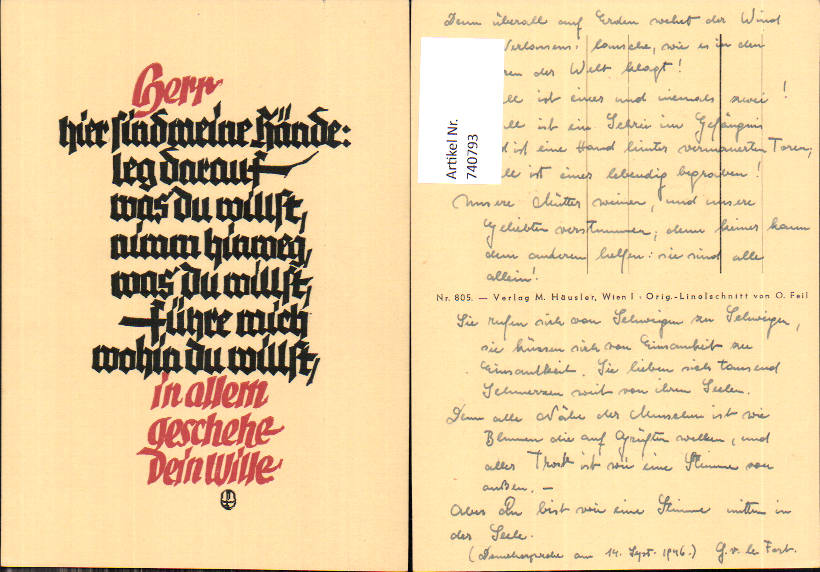 Herr
hier sind meine Hände:
leg darauf
was du willst,
nimm hinweg,
was du willst,
führe mich
wohin du willst,
in allem
geschehe
Dein Wille
Denn überall auf Erden wehet der Wind
Verlassens: lausche, wie es in den
der Welt klagt!
ist einer und niemals zwei!
ist ein Schrei im Gefängnis
ist eine Hand hinter vermauerten Toren,
ist einer lebendig begraben!
Unsere Mütter weinen, und unsere
Geliebten verstummen, denn keiner kann
dem anderen helfen: sie sind alle
allein!
Nr. 805. — Verlag M. Häusler, Wien I · Orig.-Linolschnitt von O. Feil
Sie rufen sich von Schweigen zu Schweigen,
sie küssen sich von Einsamkeit zu
Einsamkeit. Sie lieben sich tausend
Schmerzen weit von ihren Seelen.
Denn alle Nähe der Menschen ist wie
Blumen die auf Grüften welken, und
aller Trost ist wie eine Stimme von
außen. —
Aber Du bist wie eine Stimme mitten in
der Seele.
am 14. Sept. 1946.) G. v. le Fort.
Artikel Nr.
740793